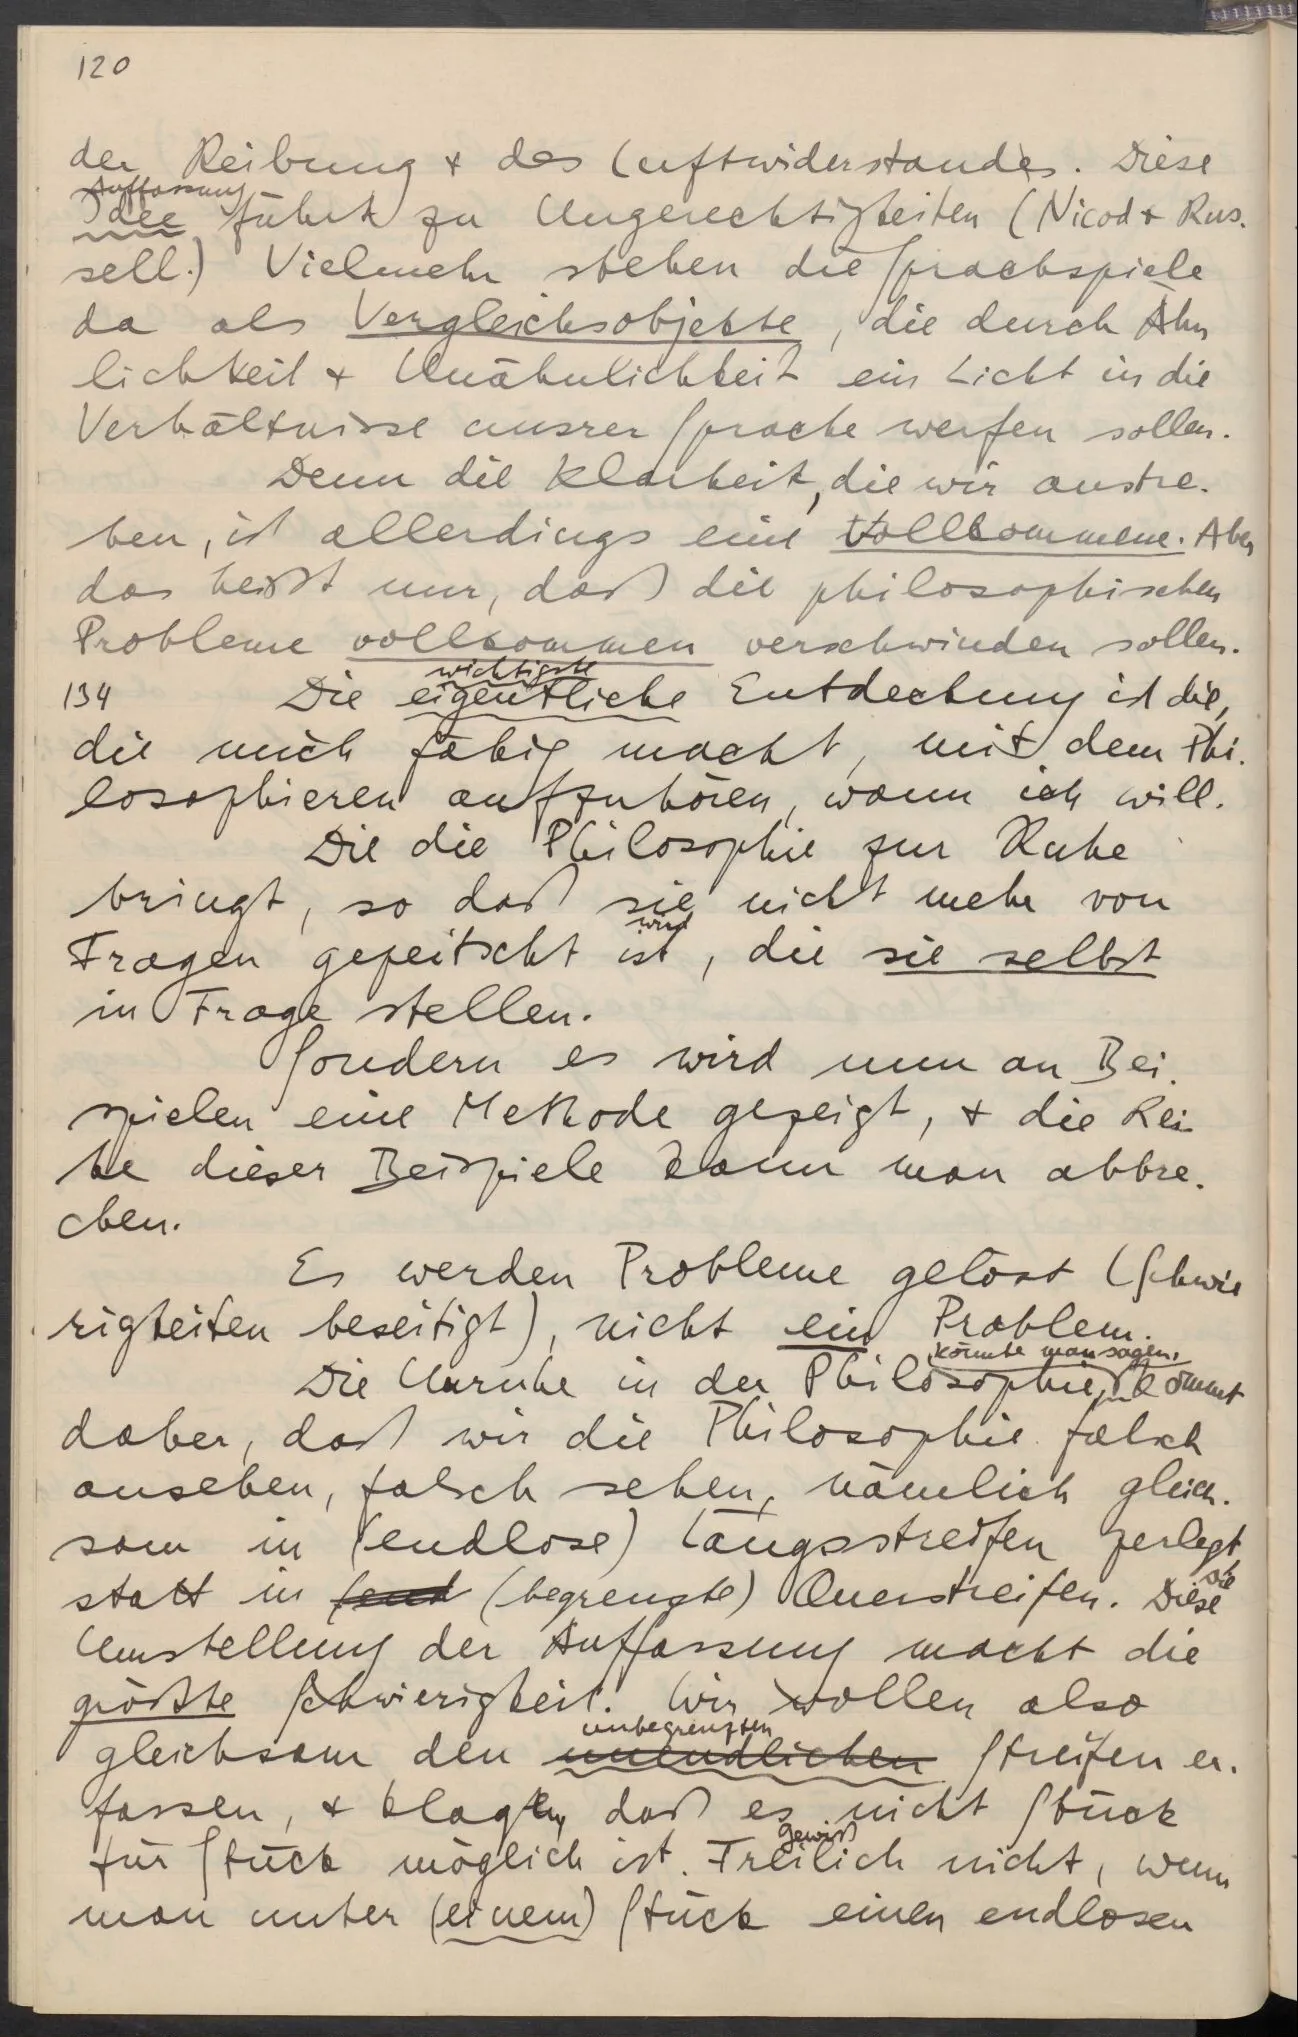 120
der Reibung & des Luftwiderstandes. Diese
Auffassung
Idee führt zu Ungerechtigkeiten (Nicod & Rus-
sell.) Vielmehr stehen die Sprachspiele
da als Vergleichsobjekte, die durch Ähn
lichkeit & Unähnlichkeit ein Licht in die
Verhältnisse unsrer Sprache werfen sollen.
Denn die Klarheit, die wir anstre-
ben, ist allerdings eine vollkommene. Aber
das heißt nur, daß die philosophischen
Probleme vollkommen verschwinden sollen.
wichtigste
134 Die eigentliche Entdeckung ist die,
die mich fähig macht, mit dem Phi-
losophieren aufzuhören, wann ich will.
Die die Philosophie zur Ruhe
bringt, so daß sie nicht mehr von
wird
Fragen gepeitscht ist, die sie selbst
in Frage stellen.
Sondern es wird nun an Bei-
spielen eine Methode gezeigt, & die Rei-
he dieser Beispiele kann man abbre-
chen.
Es werden Probleme gelöst (Schwie
rigkeiten beseitigt), nicht ein Problem.
könnte man sagen,
Die Unruhe in der Philosophie, kommt
daher, daß wir die Philosophie falsch
ansehen, falsch sehen, nämlich gleich-
sam in (endlose) Längsstreifen zerlegt
statt in (begrenzte) Querstreifen. Diese
Umstellung der Auffassung macht die
größte Schwierigkeit. Wir wollen also
unbegrenzten
gleichsam den unendlichen Streifen er-
fassen, & klagen, daß es nicht Stück
gewiß
für Stück möglich ist. Freilich nicht, wenn
man unter (einem) Stück einen endlosen